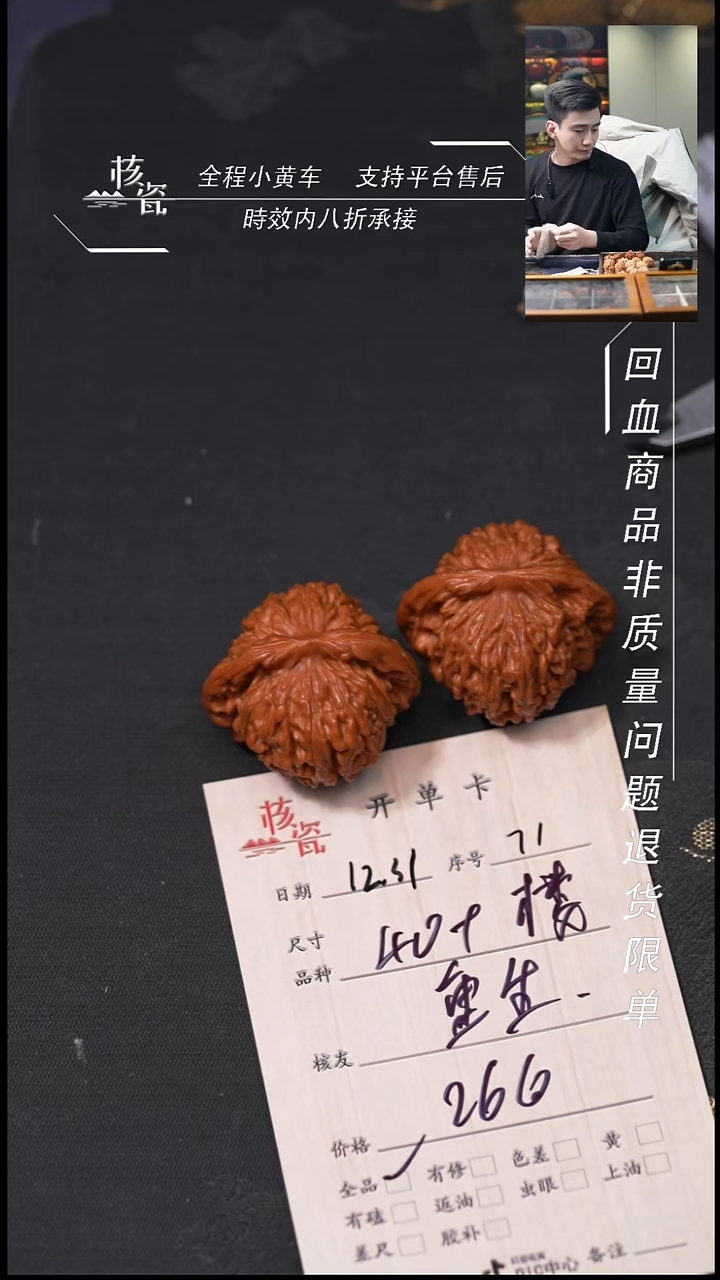 核瓷
全程小黄车 支持平台售后
時效内八折承接
回血商品非质量问题退货限单
核瓷
开单卡
日期 12.31 序号 71
尺寸 40+
品种
重生
核友
266
价格
全品 有修 色差 黄
有磕 返油 虫眼 上油
差尺 胶补
QIC中心 备注